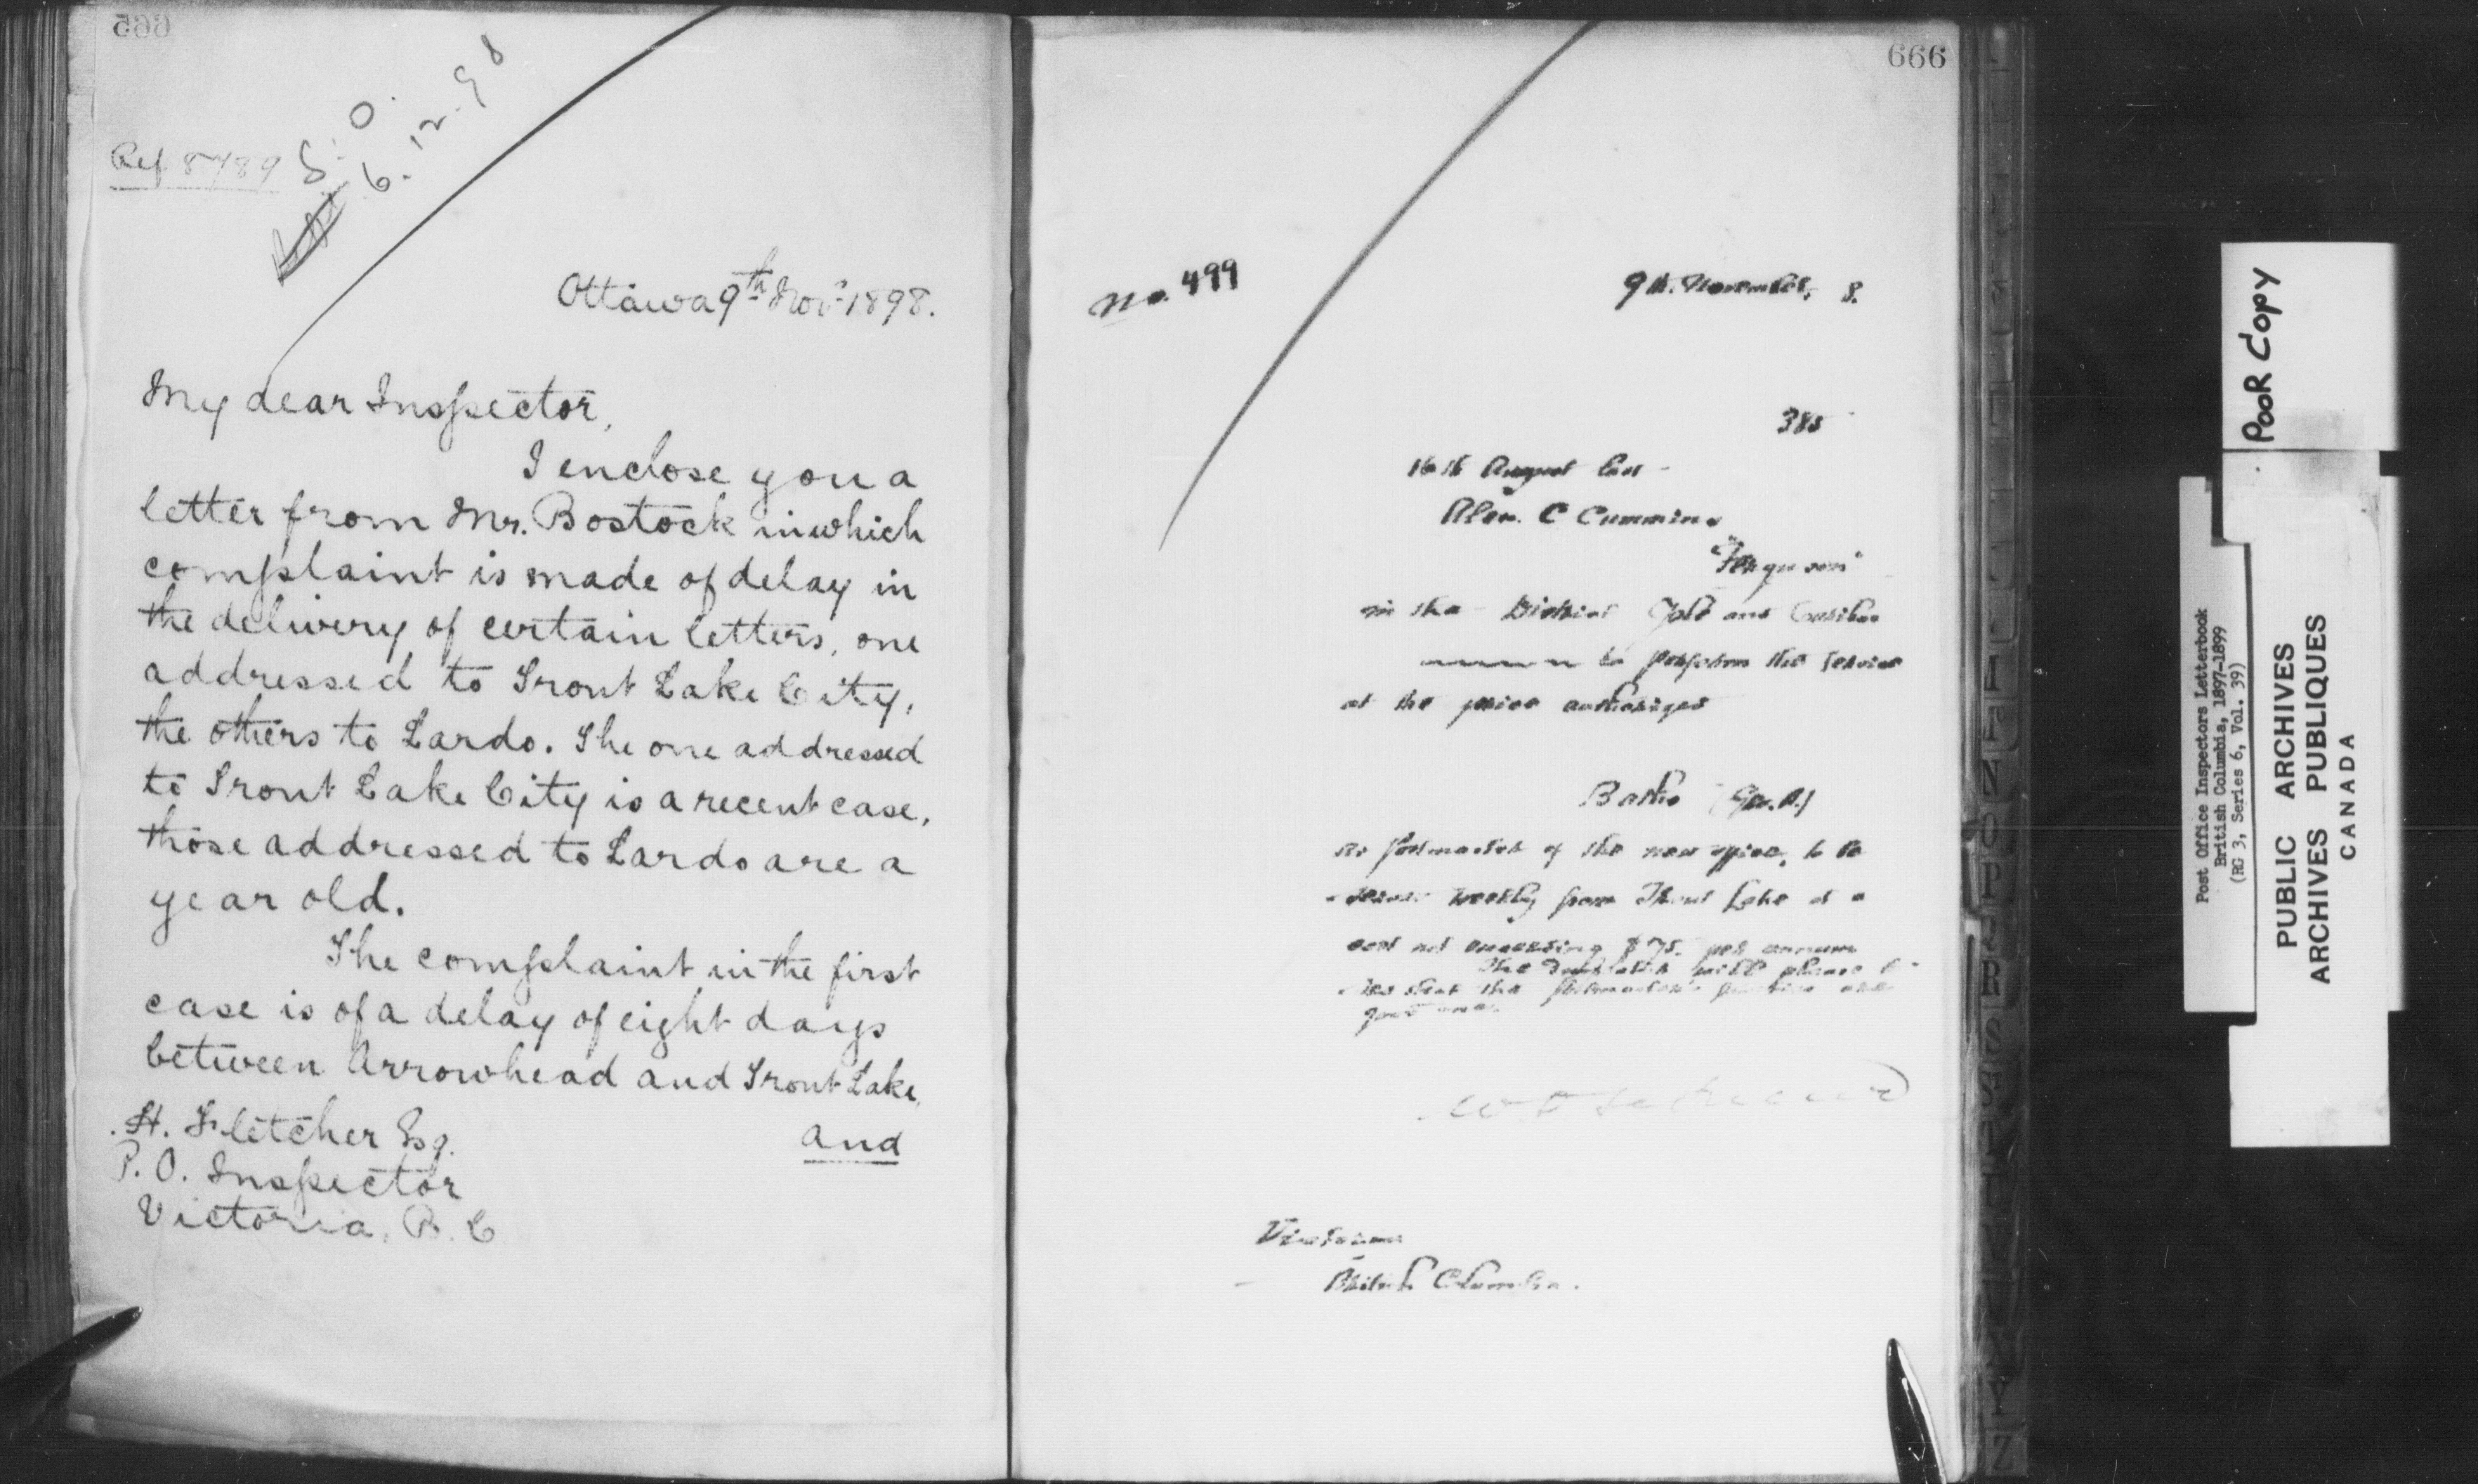 Ref. 8789
S. O.
6.12.98
Ottawa 9th Nov. 1898.
My dear Inspector,
I enclose you a
letter from Mr. Bostock in which
complaint is made of delay in
the delivery of certain letters, one
addressed to Trout Lake City,
the others to Lardo. The one addressed
to Trout Lake City is a recent case,
those addressed to Lardo are a
year old.
The complaint in the first
case is of a delay of eight days
between Arrowhead and Trout Lake,
and
H. Fletcher Esq.
P. O. Inspector
Victoria, B. C
666
No. 499
9th. November, 8.
385
16th August last -
Alex. C Cummins
"Ferguson"
in the District Yale and Cariboo
to perform the service
at the price authorized
Batho (Geo. A.)
as postmaster of the new office, to be
weekly from Trout Lake at a
cost not exceeding $75. per annum
The will please
that the postmaster's
Victoria
British Columbia.
Poor Copy
Post Office Inspectors Letterbook
British Columbia, 1897-1899
(RG 3, Series 6, Vol. 39)
PUBLIC ARCHIVES
ARCHIVES PUBLIQUES
CANADA